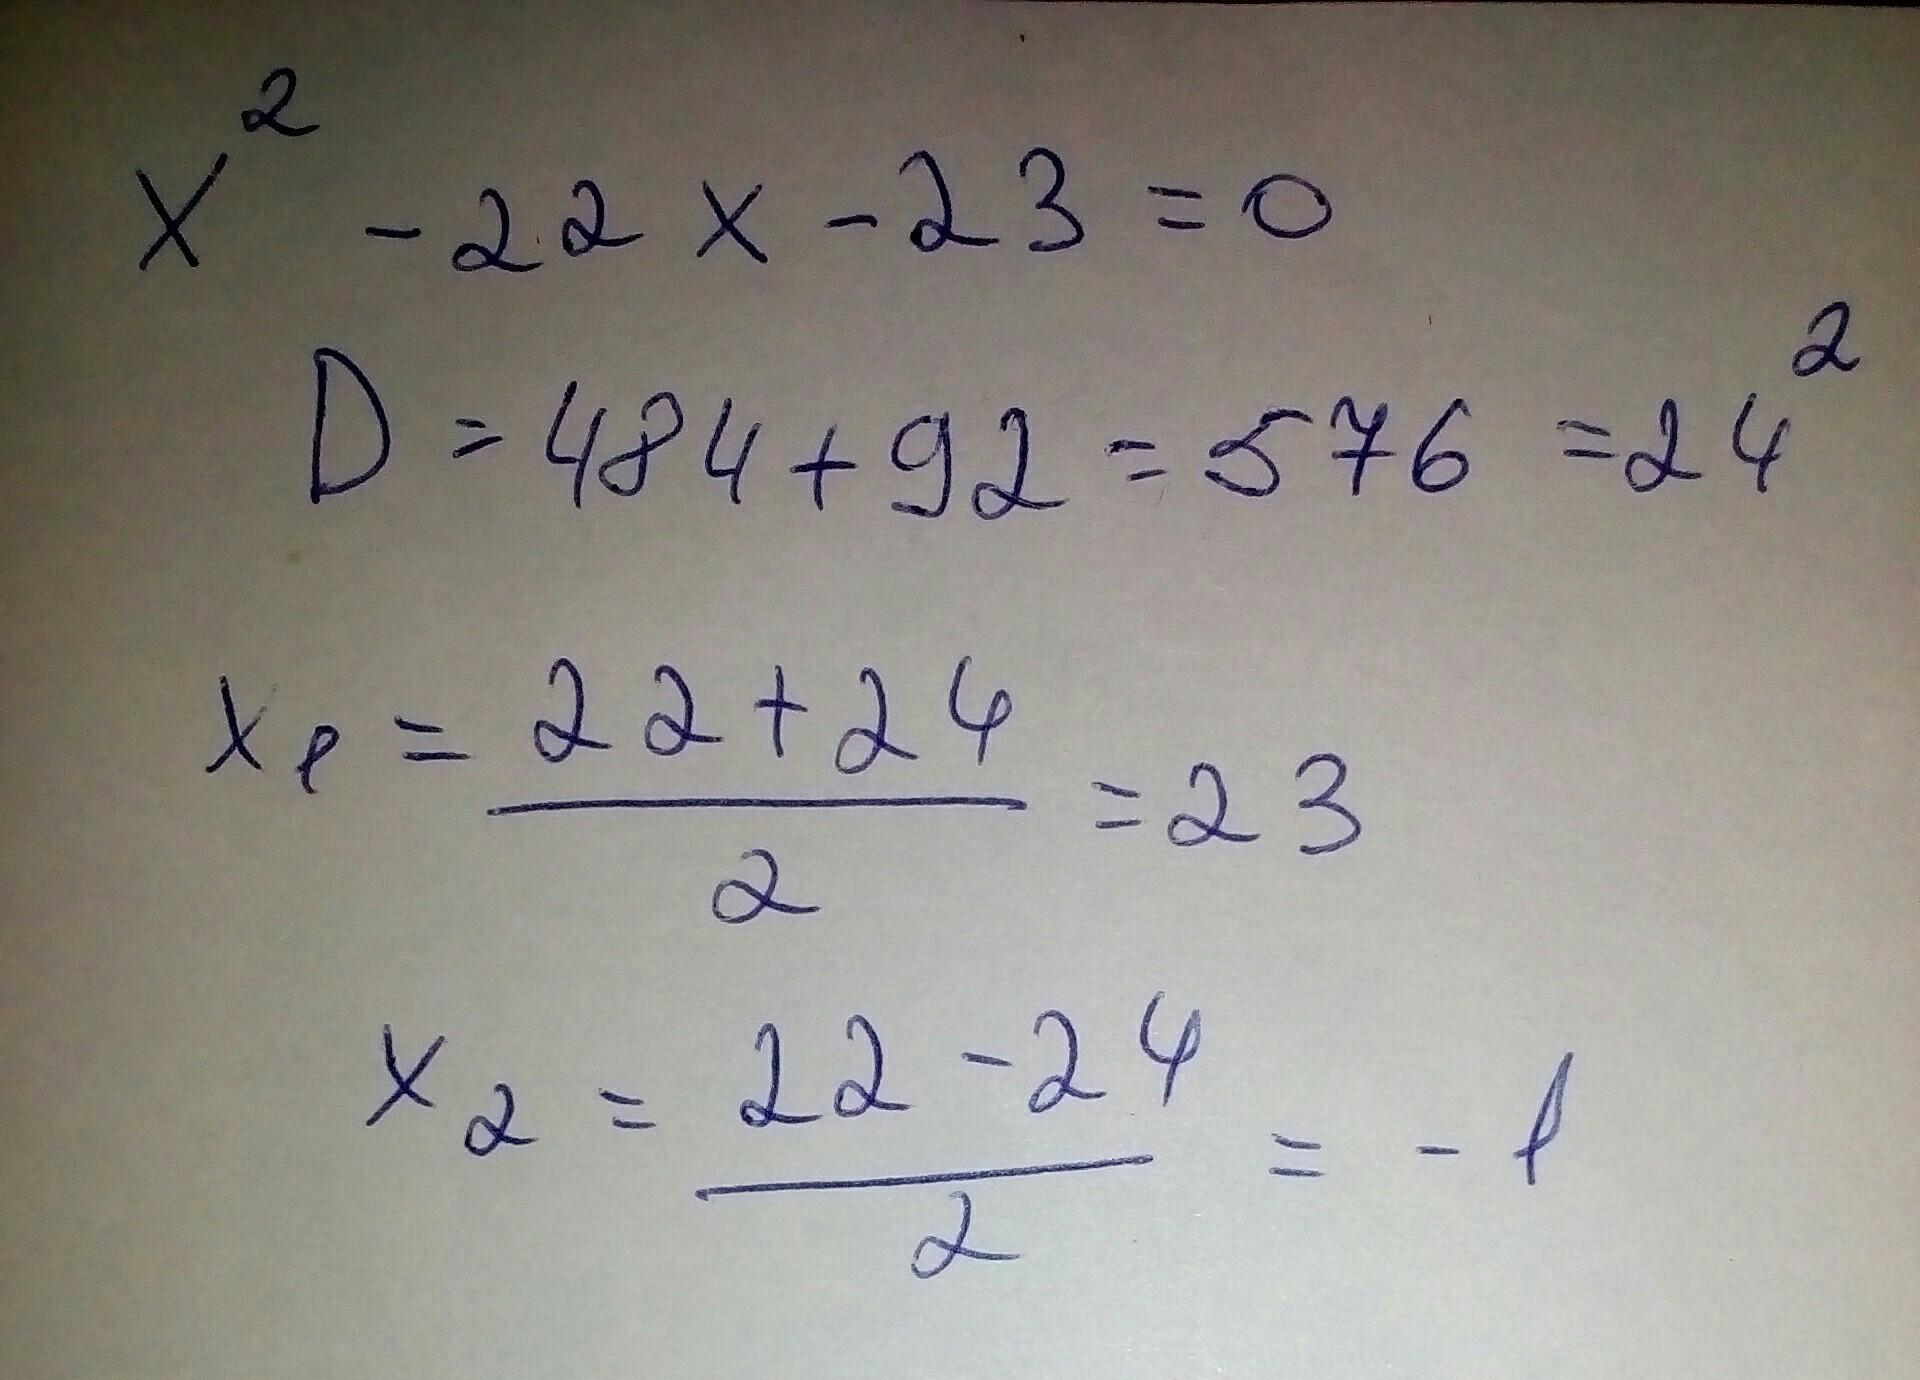 x² - 22x - 23 = 0
D = 484 + 92 = 576 = 24²
x₁ = (22 + 24)/2 = 23
x₂ = (22 - 24)/2 = -1